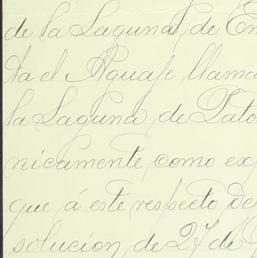 de la Laguna de En
ta el Aguaje llama
la Laguna de Pato
nicamente como exp
que á este respecto de
solucion de 27 de